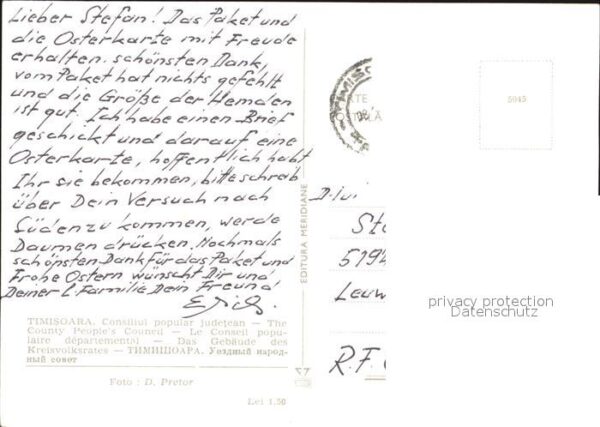 Lieber Stefan! Das Paket und
die Osterkarte mit Freude
erhalten. schönsten Dank,
vom Paket hat nichts gefehlt
und die Größe der Hemden
ist gut. Ich habe einen Brief
geschickt und darauf eine
Osterkarte, hoffentlich habt
Ihr sie bekommen, bitte schreib
über Dein Versuch nach
Süden zu kommen, werde
Daumen drücken. Nochmals
schönsten Dank für das Paket und
Frohe Ostern wünscht Dir und
Deiner l. Familie Dein Freund
TIMIȘOARA. Consiliul popular județean — The
County People's Council — Le Conseil popu-
laire départemental — Das Gebäude des
Kreisvolksrates — ТИМИШОАРА. Уездный народ-
ный совет
Foto : D. Pretor
Lei 1,50
EDITURA MERIDIANE
TIMIȘO
RTE
OȘTALĂ
5045
D-lui
Ste
5194
R.F.
privacy protection
Datenschutz